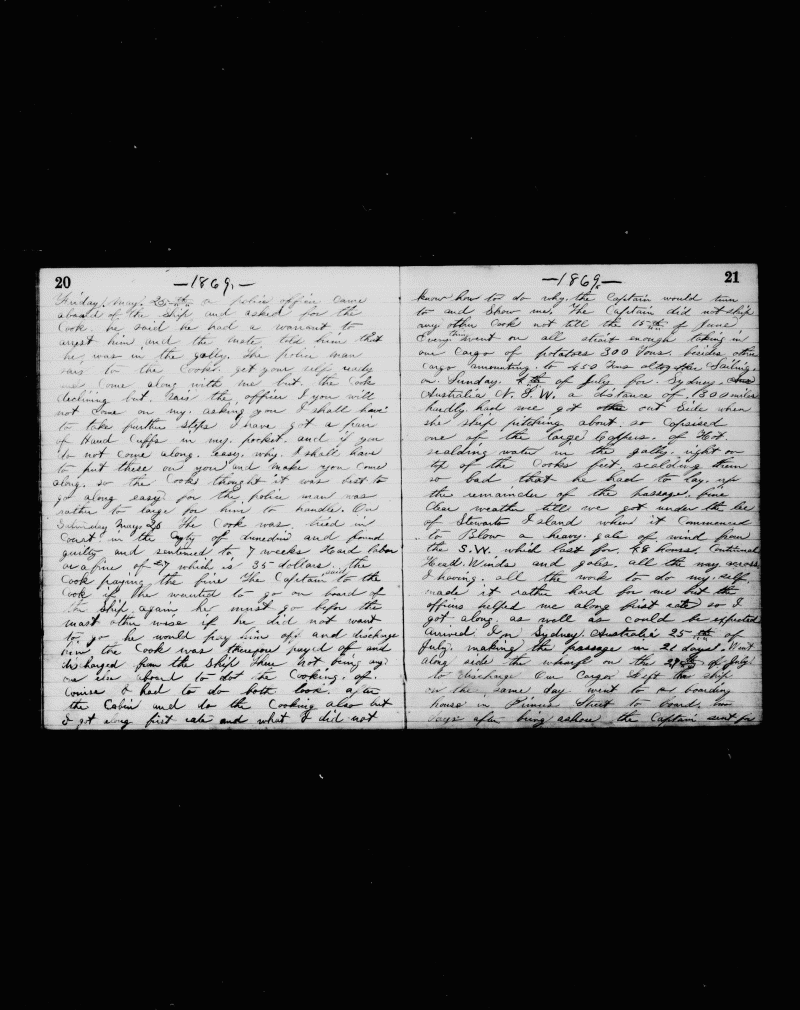 20
—1869.—
Friday, May. 25th a police officer came
aboard of the Ship and asked for the
Cook. he said he had a warrant to
arrest him and the mate told him that
he was in the gally. The police man
says to the Cook. get your self ready
and Come along with me but the Cook
declining but. Says the officer I you will
not Come on my. asking you I shall have
to take further steps I have got a pair
of Hand Cuffs in my. pocket. and if you
do not come along. easy. why. I shall have
to put these on you and make you Come
along. so the Cook thought it was best to
go along easy for the police man was
rather to large for him to handle. On
May. 26 The Cook was. tried in
Court in the City of dunedin and found
guilty and sentenced to 7 weeks Hard labor
or a fine of £7 which is 35 dollars. the
Cook paying the fine The Captain said to the
Cook if he wanted to go on board of
the Ship again he must go before the
mast other wise if he did not want
to go he would pay him off and discharge
him the Cook was thereupon payed of and
discharged from the Ship there not being any
one else aboard to do the Cooking. of.
Course I had to do both look. after
the Cabin and do the Cooking also but
I got along first rate and what I did not
21
—1869.—
know how to do why. the Captain would turn
to and Show me. The Captain did not ship
any other Cook not till the 15th of June
Every thing went on all strait enough taking in
our Cargo of potatoes 300 Tons. besides other
Cargo amounting. to 450 Tons Sailing.
on. Sunday. 4th of July for. Sydney.
Australia N. S. W. a distance of 1300 miles
hardly. had we got out Side when
she Ship pitching about. so Capsised
one of the large Coppers. of Hot.
scalding water in the gally. right on
top of the Cooks feet. scalding them
so bad that he had to lay. up
the remainder of the passage. fine
Clear weather till we got under the lee
of Stewarts Island when it Commenced
to Blow a heavy. gale of wind from
the S.W. which last for 48 hours. Continual
Head Winds and gales. all the way across
I having. all the work to do my. self.
made it rather hard for me but the
officers helped me along first rate so I
got along. as well as could be expected
arrived In Sydney. Australia 25th of
July. making the passage in 21 days. Went
along side the wharf on the 27th of July
to discharge Our Cargo left the ship
on the same day went to a boarding
house in Street to board.
days after being ashore the Captain sent for